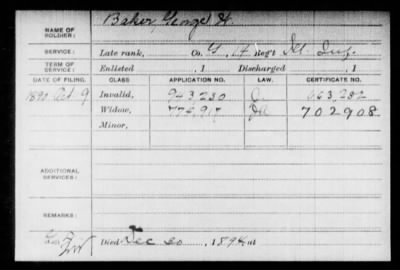 NAME OF SOLDIER: Baker, George H.
SERVICE: Late rank, Co. G, 14 Reg't Ill. Inf.
TERM OF SERVICE: Enlisted , 1 Discharged , 1
DATE OF FILING. CLASS APPLICATION NO. LAW. CERTIFICATE NO.
1890 Oct 9 Invalid, 943,230 663,282
Widow, 702908
Minor,
ADDITIONAL SERVICES:
REMARKS:
Died Dec 20, 1894, at